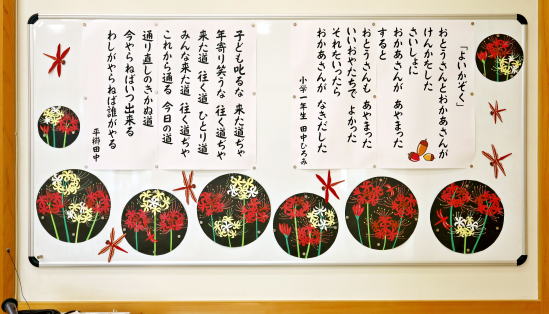 「よいかぞく」
おとうさんとおかあさんが
けんかをした
さいしょに
おかあさんが あやまった
すると
おとうさんも あやまった
いいおやたちで よかった
それをいったら
おかあさんが なきだした
小学一年生 田中ひろみ
子ども叱るな 来た道ぢゃ
年寄り笑うな 往く道ぢゃ
来た道 往く道 ひとり道
みんな来た道 往く道ぢゃ
これから通る 今日の道
通り直しのきかぬ道
今やらねばいつ出来る
わしがやらねば誰がやる
平櫛田中